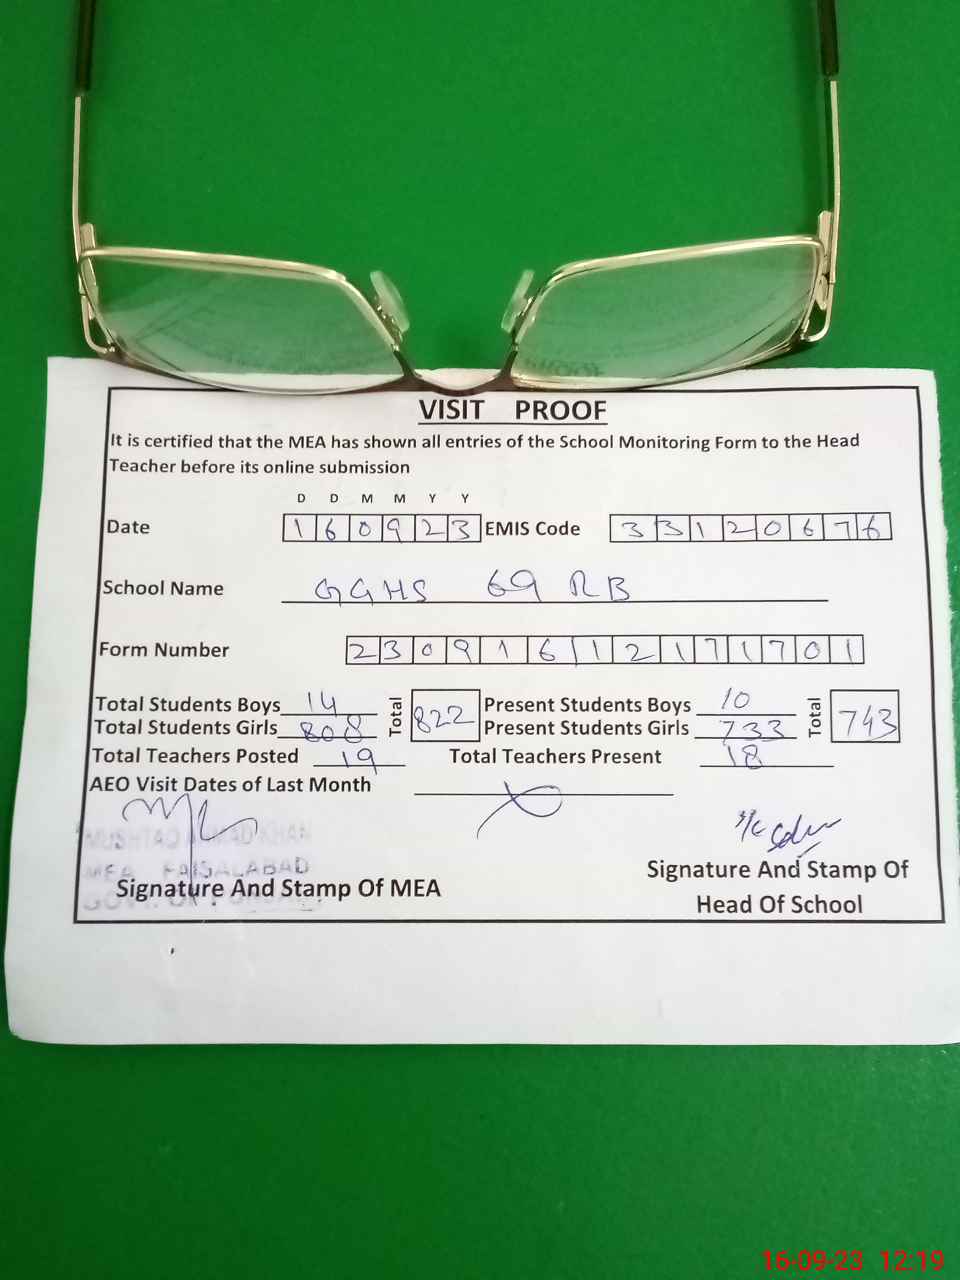 VISIT PROOF
It is certified that the MEA has shown all entries of the School Monitoring Form to the Head
Teacher before its online submission
D D M M Y Y
Date 1 6 0 9 2 3 EMIS Code 3 3 1 2 0 6 7 6
School Name GGHS 69 RB
Form Number 2 3 0 9 1 6 1 2 1 7 1 7 0 1
Total Students Boys 14 Total 822 Present Students Boys 10 Total 743
Total Students Girls 808 Present Students Girls 733
Total Teachers Posted 19 Total Teachers Present 18
AEO Visit Dates of Last Month
MUSHTAQ AHMAD KHAN
MEA FAISALABAD
Signature And Stamp Of MEA
GOVT. OF PUNJAB
Signature And Stamp Of
Head Of School
16-09-23 12:19